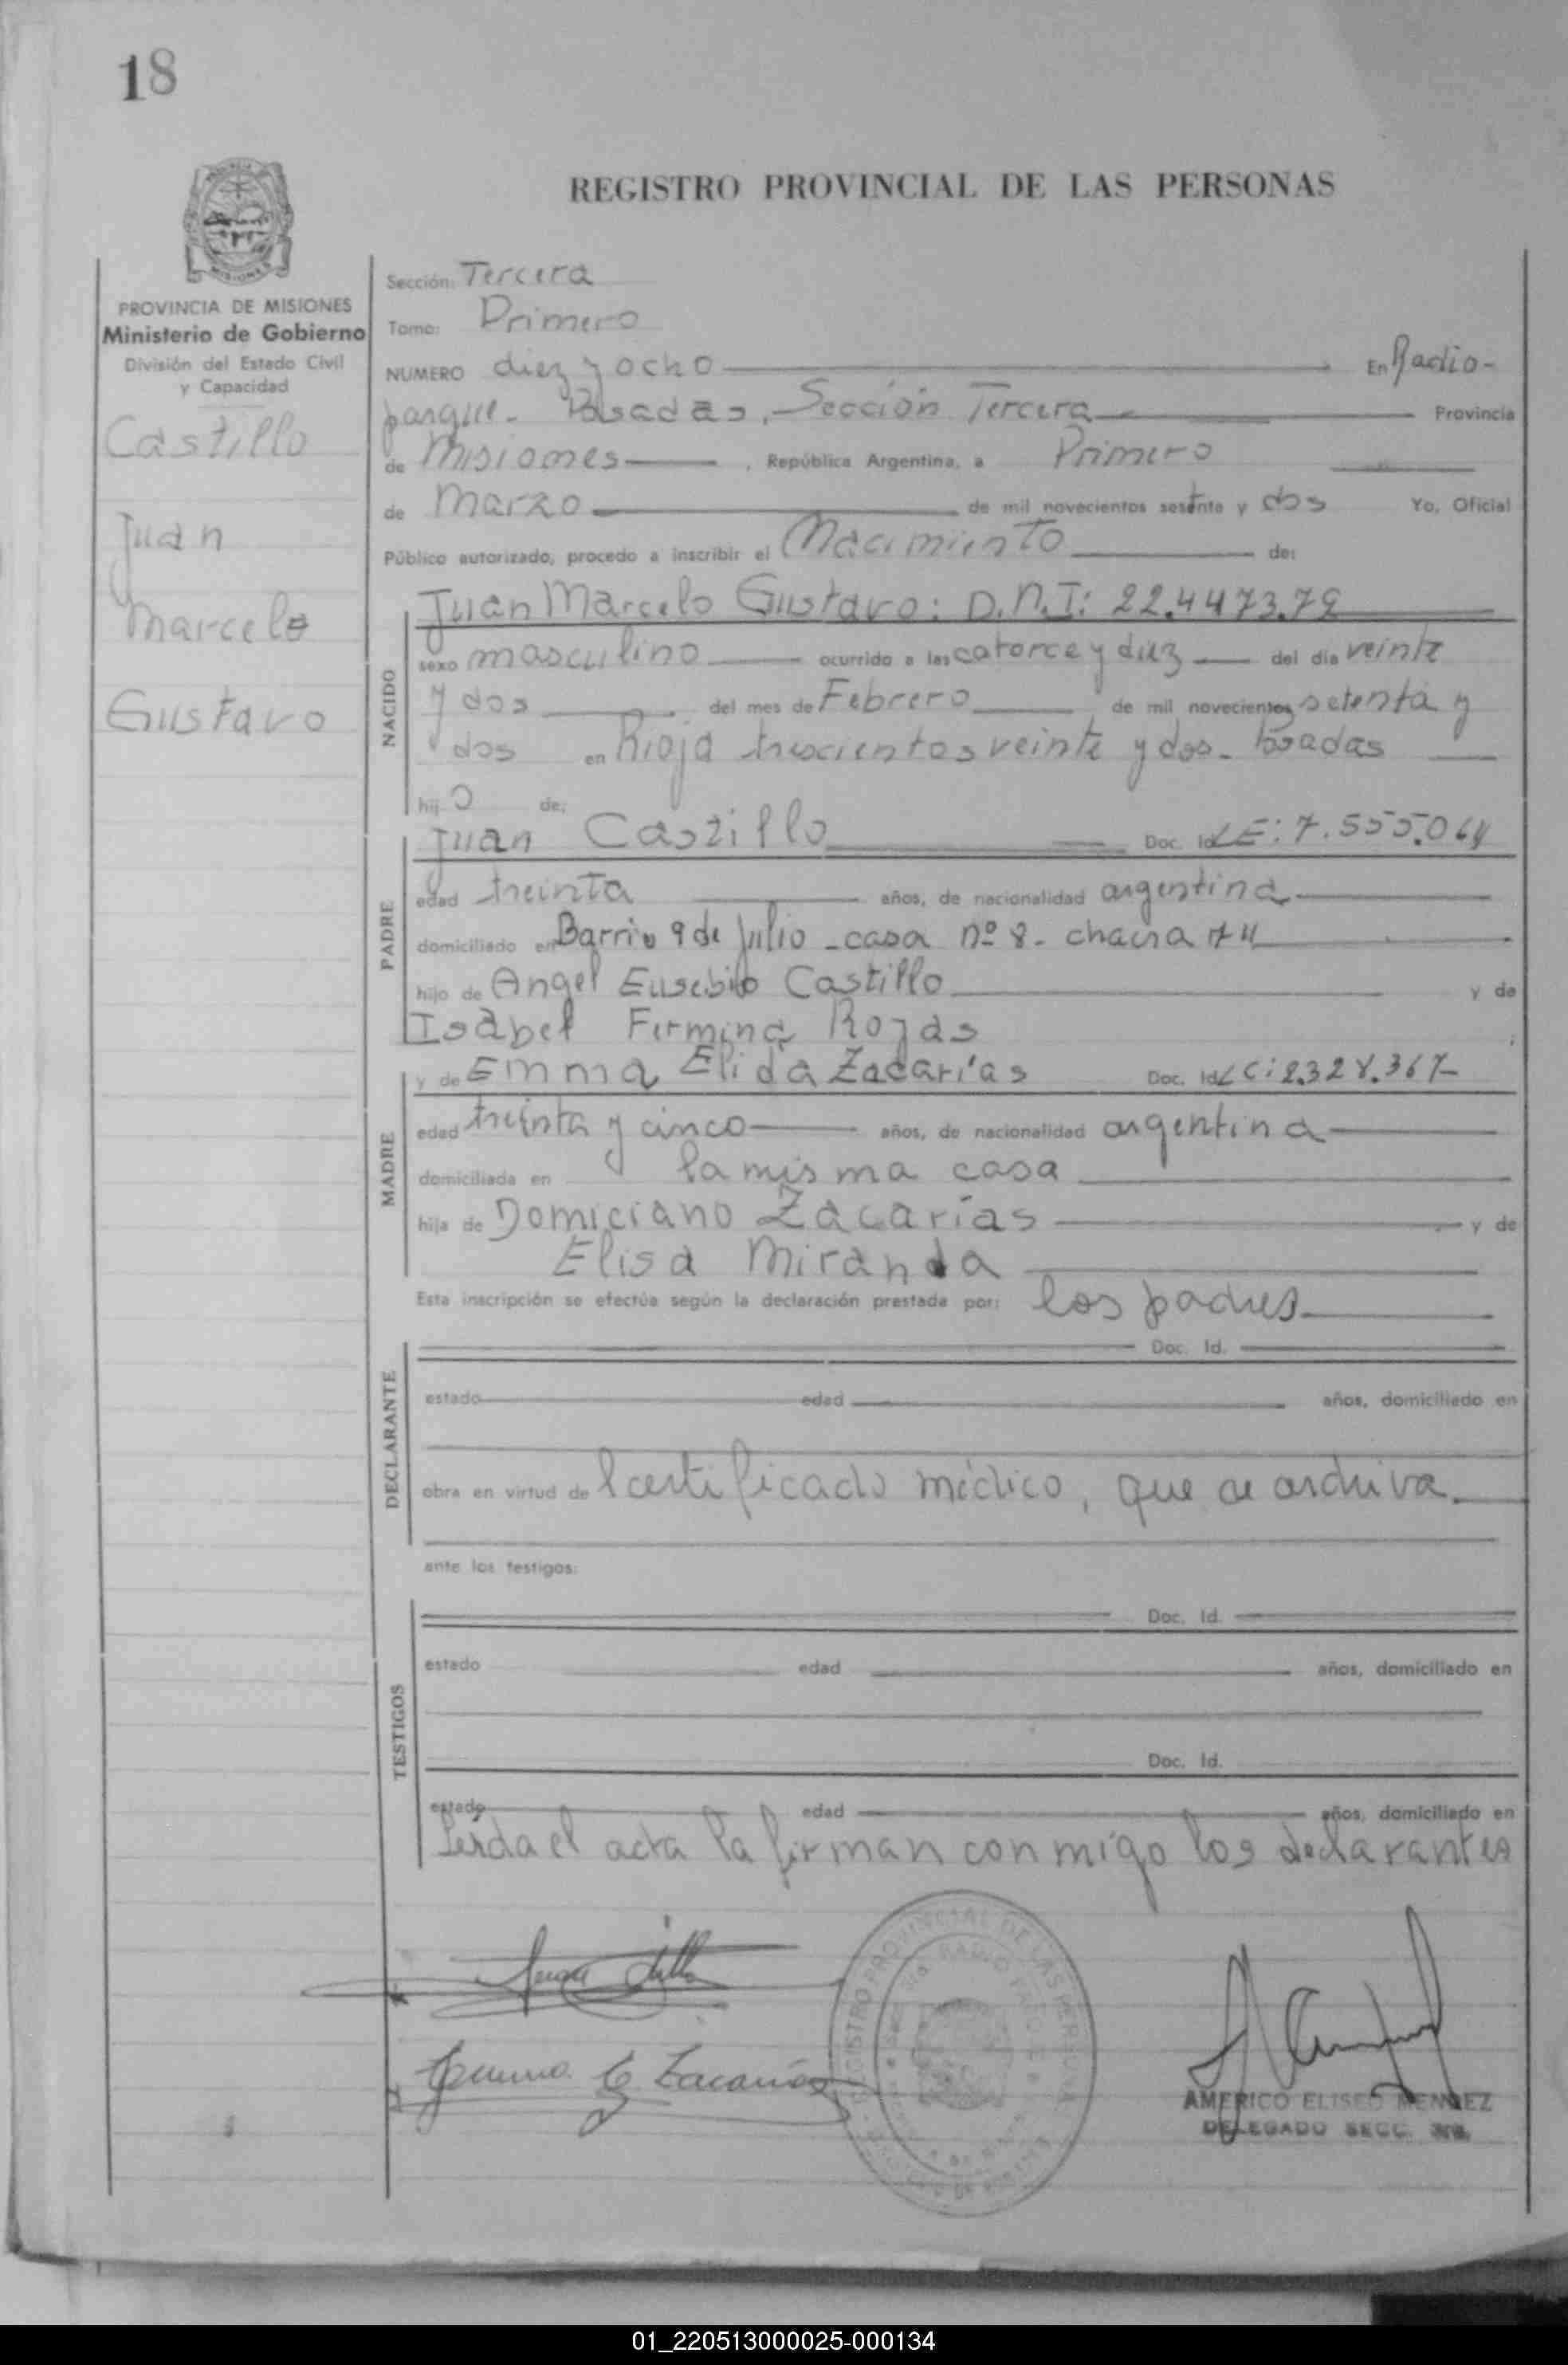 18
REGISTRO PROVINCIAL DE LAS PERSONAS
PROVINCIA DE MISIONES
Ministerio de Gobierno
División del Estado Civil
y Capacidad
Castillo
Juan
Marcelo
Gustavo
Sección: Tercera
Tomo: Primero
NUMERO diez y ocho En Radio-
parque. Posadas, Sección Tercera Provincia
de Misiones, República Argentina, a Primero
de Marzo de mil novecientos setenta y dos Yo, Oficial
Público autorizado, procedo a inscribir el Nacimiento de:
NACIDO
Juan Marcelo Gustavo: D.N.I: 22.447.372
sexo masculino ocurrido a las catorce y diez del día veinte
y dos del mes de Febrero de mil novecientos setenta y
dos en Rioja trescientos veinte y dos. Posadas
hijo de:
PADRE
Juan Castillo Doc. Id LE: 7.555.064
edad treinta años, de nacionalidad argentina
domiciliado en Barrio 9 de Julio - casa nº 8 - chacra 74
hijo de Angel Eusebio Castillo y de
Isabel Firmina Rojas
MADRE
y de Emma Elida Zacarías Doc. Id LC: 2.328.367
edad treinta y cinco años, de nacionalidad argentina
domiciliada en la misma casa
hija de Domiciano Zacarías y de
Elisa Miranda
Esta inscripción se efectúa según la declaración prestada por: los padres
DECLARANTE
Doc. Id.
estado edad años, domiciliado en
obra en virtud del certificado médico, que se archiva.
ante los testigos:
TESTIGOS
Doc. Id.
estado edad años, domiciliado en
Doc. Id.
estado edad años, domiciliado en
Leída el acta la firman conmigo los declarantes
REGISTRO PROVINCIAL DE LAS PERSONAS
Emma E Zacarías
AMERICO ELISEO MENDEZ
DELEGADO SECC.
01_220513000025-000134